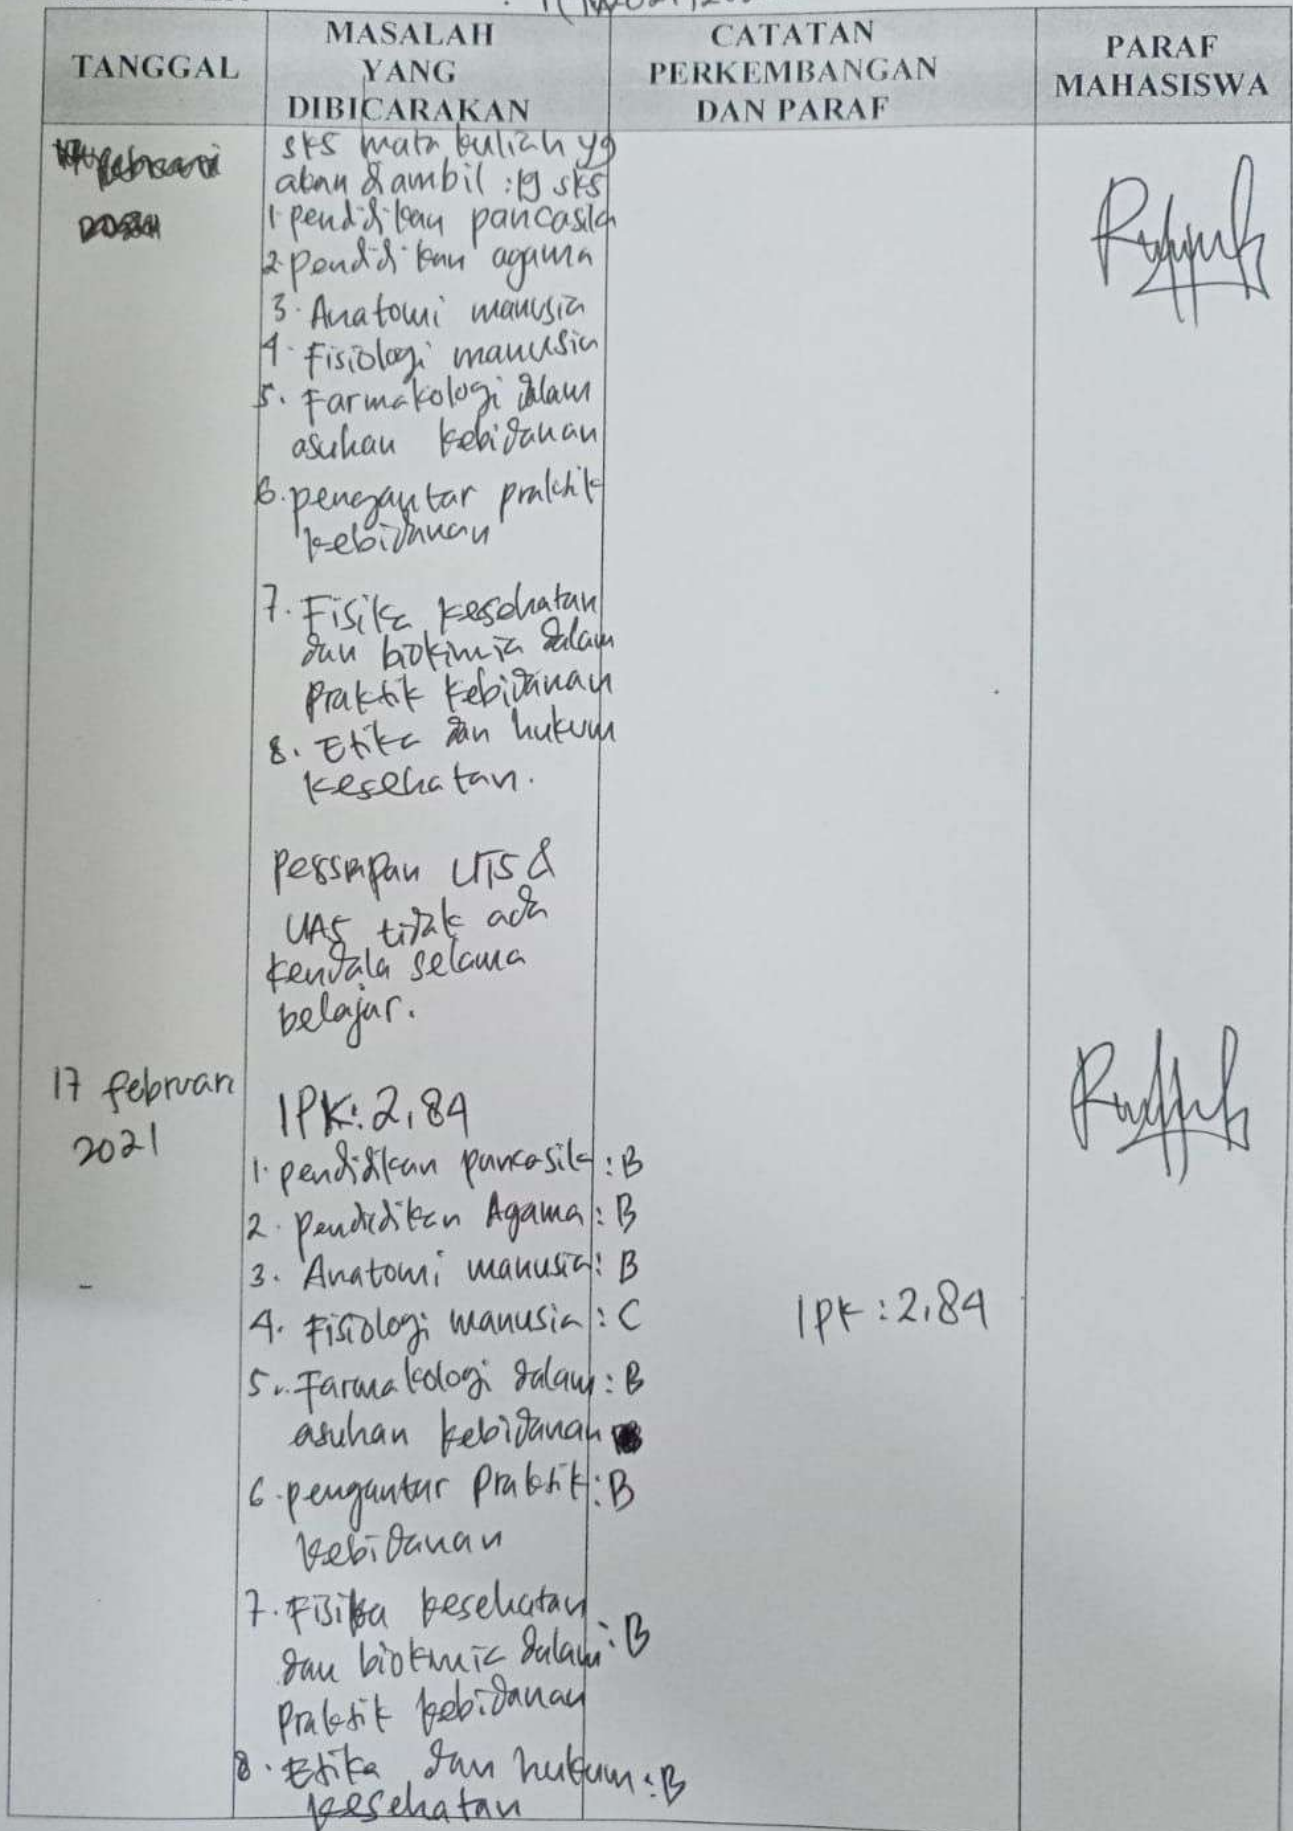 TANGGAL
MASALAH
YANG
DIBICARAKAN
CATATAN
PERKEMBANGAN
DAN PARAF
PARAF
MAHASISWA
sks mata kuliah yg
akan diambil : 19 sks
1. pendidikan pancasila
2. pendidikan agama
3. Anatomi manusia
4. Fisiologi manusia
5. Farmakologi dalam
asuhan kebidanan
6. pengantar praktik
kebidanan
7. Fisika kesehatan
dan biokimia dalam
Praktik kebidanan
8. Etika dan hukum
kesehatan.
UTS &
UAS tidak ada
kendala selama
belajar.
17 februari
2021
IPK: 2,84
1. pendidikan pancasila : B
2. pendidikan Agama : B
3. Anatomi manusia : B
4. Fisiologi manusia : C
Ipk : 2,84
5. Farmakologi dalam : B
asuhan kebidanan
6. pengantar Praktik : B
kebidanan
7. Fisika kesehatan
dan biokimia dalam : B
Praktik kebidanan
8. Etika dan hukum : B
kesehatan